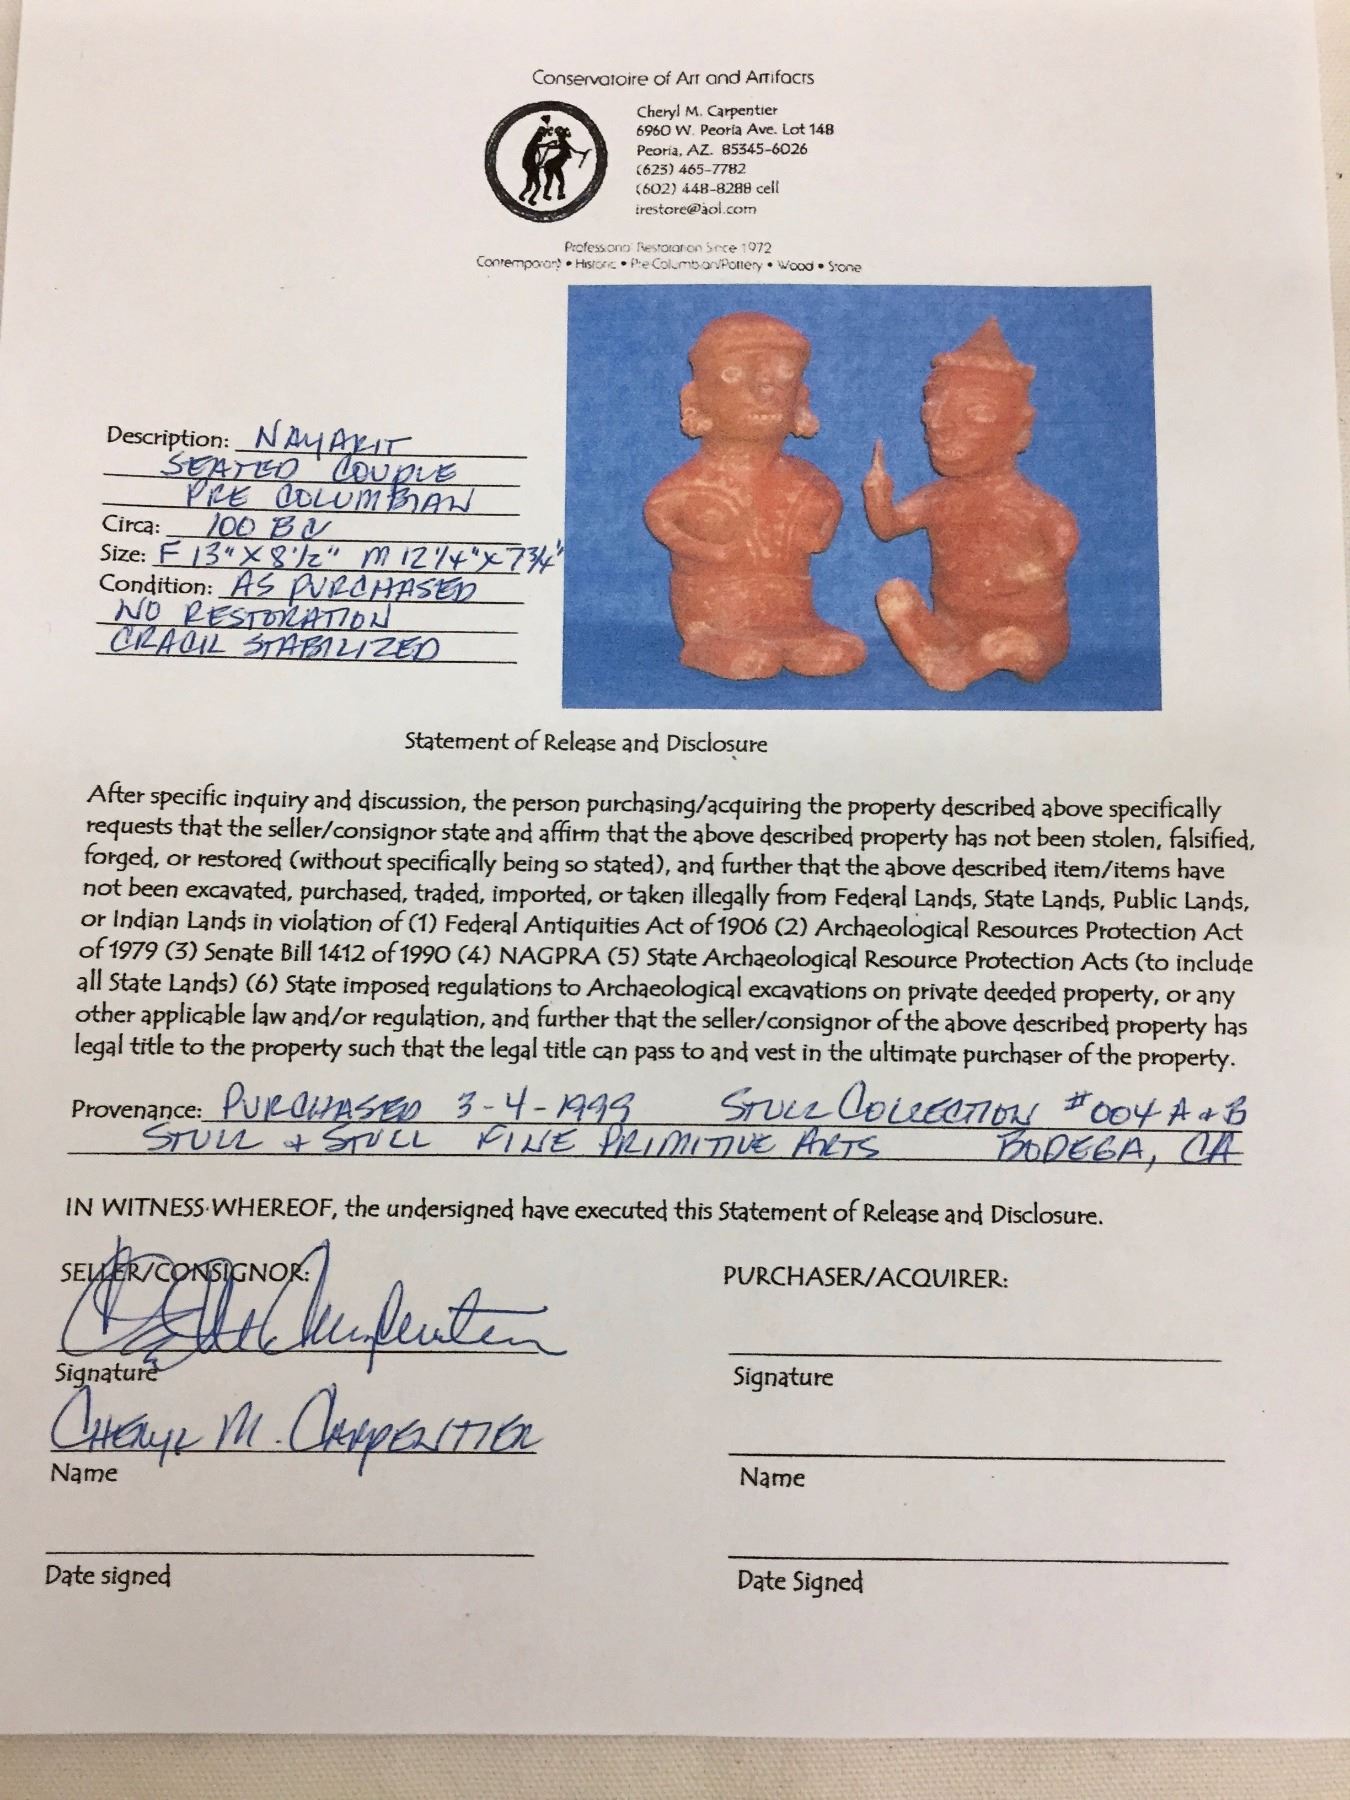 Conservatoire of Art and Artifacts
Cheryl M. Carpentier
6960 W. Peoria Ave. Lot 148
Peoria, AZ. 85345-6026
(623) 465-7782
(602) 448-8288 cell
irestore@aol.com
Professional Restoration Since 1972
Contemporary • Historic • Pre-Columbian/Pottery • Wood • Stone
Description: NAYARIT
SEATED COUPLE
PRE COLUMBIAN
Circa: 100 BC
Size: F 13" X 8 1/2" M 12 1/4" X 7 3/4"
Condition: AS PURCHASED
NO RESTORATION
CRACK STABILIZED
Statement of Release and Disclosure
After specific inquiry and discussion, the person purchasing/acquiring the property described above specifically
requests that the seller/consignor state and affirm that the above described property has not been stolen, falsified,
forged, or restored (without specifically being so stated), and further that the above described item/items have
not been excavated, purchased, traded, imported, or taken illegally from Federal Lands, State Lands, Public Lands,
or Indian Lands in violation of (1) Federal Antiquities Act of 1906 (2) Archaeological Resources Protection Act
of 1979 (3) Senate Bill 1412 of 1990 (4) NAGPRA (5) State Archaeological Resource Protection Acts (to include
all State Lands) (6) State imposed regulations to Archaeological excavations on private deeded property, or any
other applicable law and/or regulation, and further that the seller/consignor of the above described property has
legal title to the property such that the legal title can pass to and vest in the ultimate purchaser of the property.
Provenance: PURCHASED 3-4-1999 STULL COLLECTION #004 A & B
STULL & STULL FINE PRIMITIVE ARTS BODEGA, CA
IN WITNESS WHEREOF, the undersigned have executed this Statement of Release and Disclosure.
SELLER/CONSIGNOR: PURCHASER/ACQUIRER:
Carpentier
Signature Signature
CHERYL M. CARPENTIER
Name Name
Date signed Date Signed